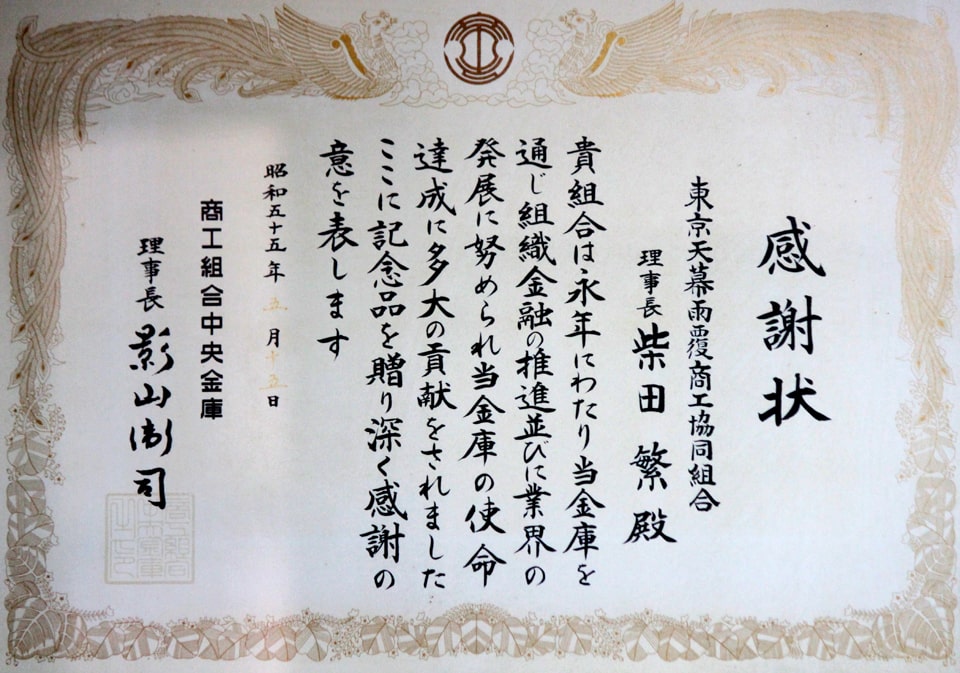 感謝状
東京天幕雨覆商工協同組合
理事長 柴田 繁 殿
貴組合は永年にわたり当金庫を
通じ組織金融の推進並びに業界の
発展に努められ当金庫の使命
達成に多大の貢献をされました
ここに記念品を贈り深く感謝の
意を表します
昭和五十五年五月十五日
商工組合中央金庫
理事長 影山衛司